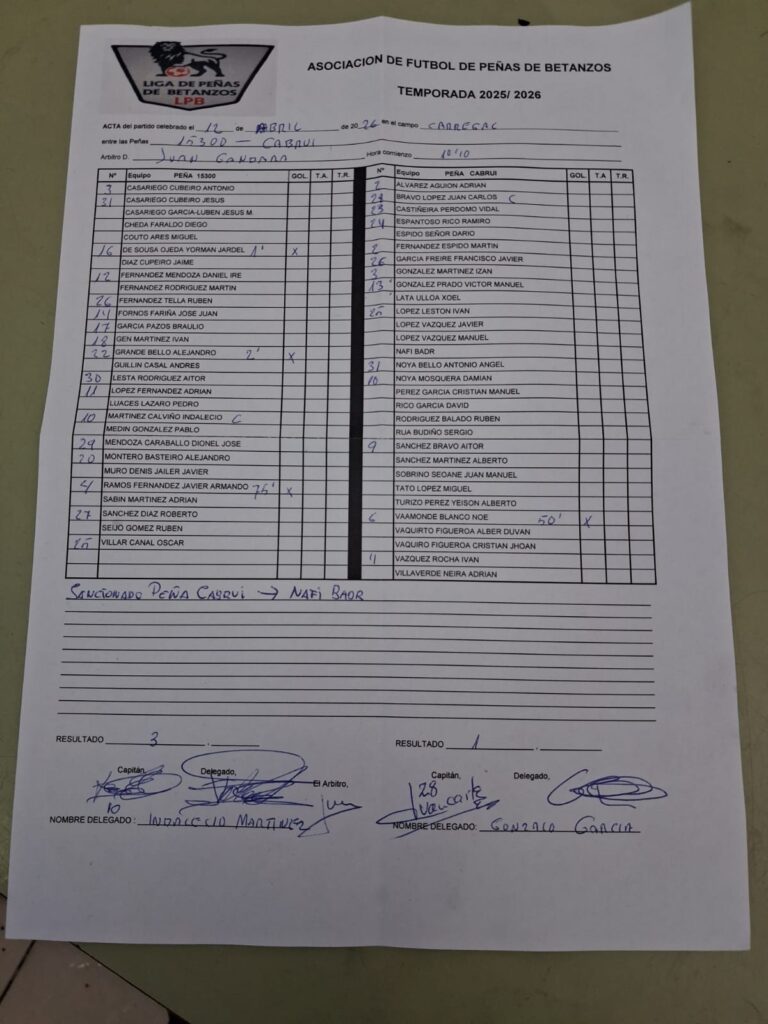 LIGA DE PEÑAS
DE BETANZOS
LPB
ASOCIACION DE FUTBOL DE PEÑAS DE BETANZOS
TEMPORADA 2025/ 2026
ACTA del partido celebrado el 12 de ABRIL de 2026 en el campo CARREGAL
entre las Peñas 15300 - CABRUI
Arbitro D. JUAN GANDARA Hora comienzo
Nº Equipo PEÑA 15300 GOL. T.A. T.R.
3 CASARIEGO CUBEIRO ANTONIO
31 CASARIEGO CUBEIRO JESUS
CASARIEGO GARCIA-LUBEN JESUS M.
CHEDA FARALDO DIEGO
COUTO ARES MIGUEL
16 DE SOUSA OJEDA YORMAN JARDEL 1' x
DIAZ CUPEIRO JAIME
12 FERNANDEZ MENDOZA DANIEL IRE
FERNANDEZ RODRIGUEZ MARTIN
26 FERNANDEZ TELLA RUBEN
14 FORNOS FARIÑA JOSE JUAN
17 GARCIA PAZOS BRAULIO
18 GEN MARTINEZ IVAN
22 GRANDE BELLO ALEJANDRO 2' x
GUILLIN CASAL ANDRES
30 LESTA RODRIGUEZ AITOR
11 LOPEZ FERNANDEZ ADRIAN
LUACES LAZARO PEDRO
10 MARTINEZ CALVIÑO INDALECIO C
MEDIN GONZALEZ PABLO
29 MENDOZA CARABALLO DIONEL JOSE
20 MONTERO BASTEIRO ALEJANDRO
MURO DENIS JAILER JAVIER
4 RAMOS FERNANDEZ JAVIER ARMANDO 75' x
SABIN MARTINEZ ADRIAN
27 SANCHEZ DIAZ ROBERTO
SEIJO GOMEZ RUBEN
25 VILLAR CANAL OSCAR
Nº Equipo PEÑA CABRUI GOL. T.A T.R.
ALVAREZ AGUION ADRIAN
28 BRAVO LOPEZ JUAN CARLOS C
23 CASTIÑEIRA PERDOMO VIDAL
24 ESPANTOSO RICO RAMIRO
ESPIDO SEÑOR DARIO
2 FERNANDEZ ESPIDO MARTIN
26 GARCIA FREIRE FRANCISCO JAVIER
3 GONZALEZ MARTINEZ IZAN
13 GONZALEZ PRADO VICTOR MANUEL
LATA ULLOA XOEL
25 LOPEZ LESTON IVAN
LOPEZ VAZQUEZ JAVIER
LOPEZ VAZQUEZ MANUEL
NAFI BADR
31 NOYA BELLO ANTONIO ANGEL
10 NOYA MOSQUERA DAMIAN
PEREZ GARCIA CRISTIAN MANUEL
RICO GARCIA DAVID
RODRIGUEZ BALADO RUBEN
RUA BUDIÑO SERGIO
9 SANCHEZ BRAVO AITOR
SANCHEZ MARTINEZ ALBERTO
SOBRINO SEOANE JUAN MANUEL
TATO LOPEZ MIGUEL
TURIZO PEREZ YEISON ALBERTO
6 VAAMONDE BLANCO NOE 50' x
VAQUIRTO FIGUEROA ALBER DUVAN
VAQUIRO FIGUEROA CRISTIAN JHOAN
4 VAZQUEZ ROCHA IVAN
VILLAVERDE NEIRA ADRIAN
SANCIONADO PEÑA CABRUI → NAFI BADR
RESULTADO 3 . RESULTADO 1 .
Capitán, Delegado, El Arbitro, Capitán, Delegado,
10 28
NOMBRE DELEGADO : INDALECIO MARTINEZ NOMBRE DELEGADO: GONZALO GARCIA